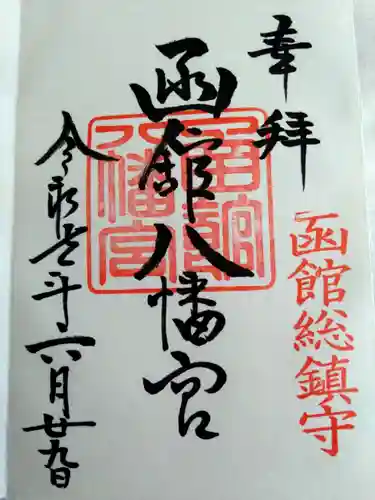 奉拝
函館総鎮守
函館八幡宮
函館八幡宮
令和元年六月廿九日